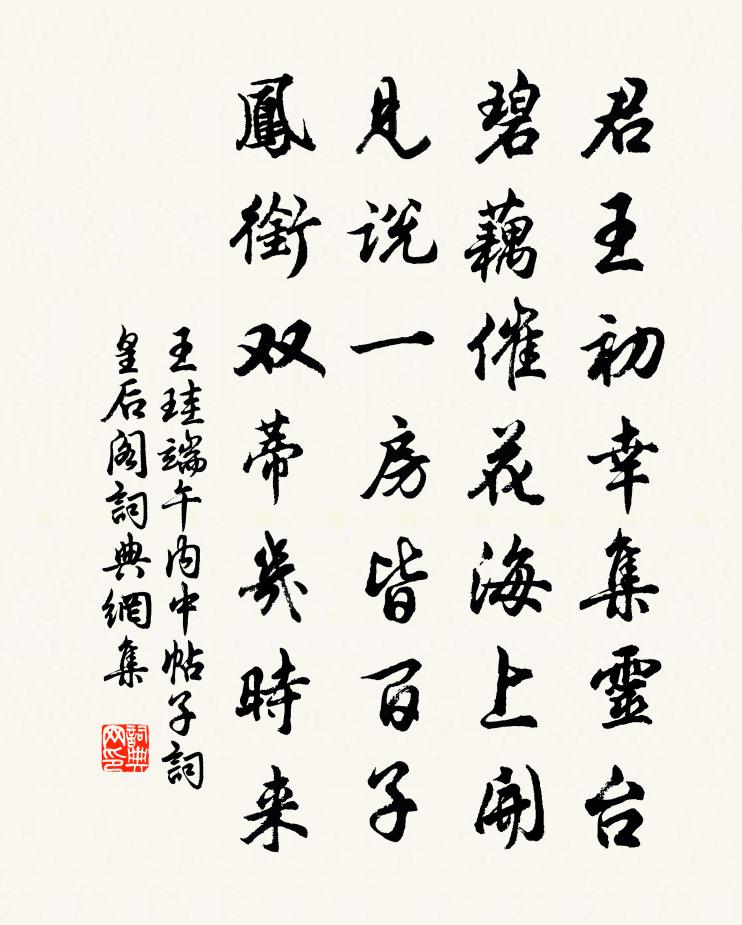 君王初幸集靈台
碧藕催花海上開
見説一房皆百子
鳳銜双蒂幾時来
王珪端午内中帖子詞
皇后阁詞典網集
詞典网印